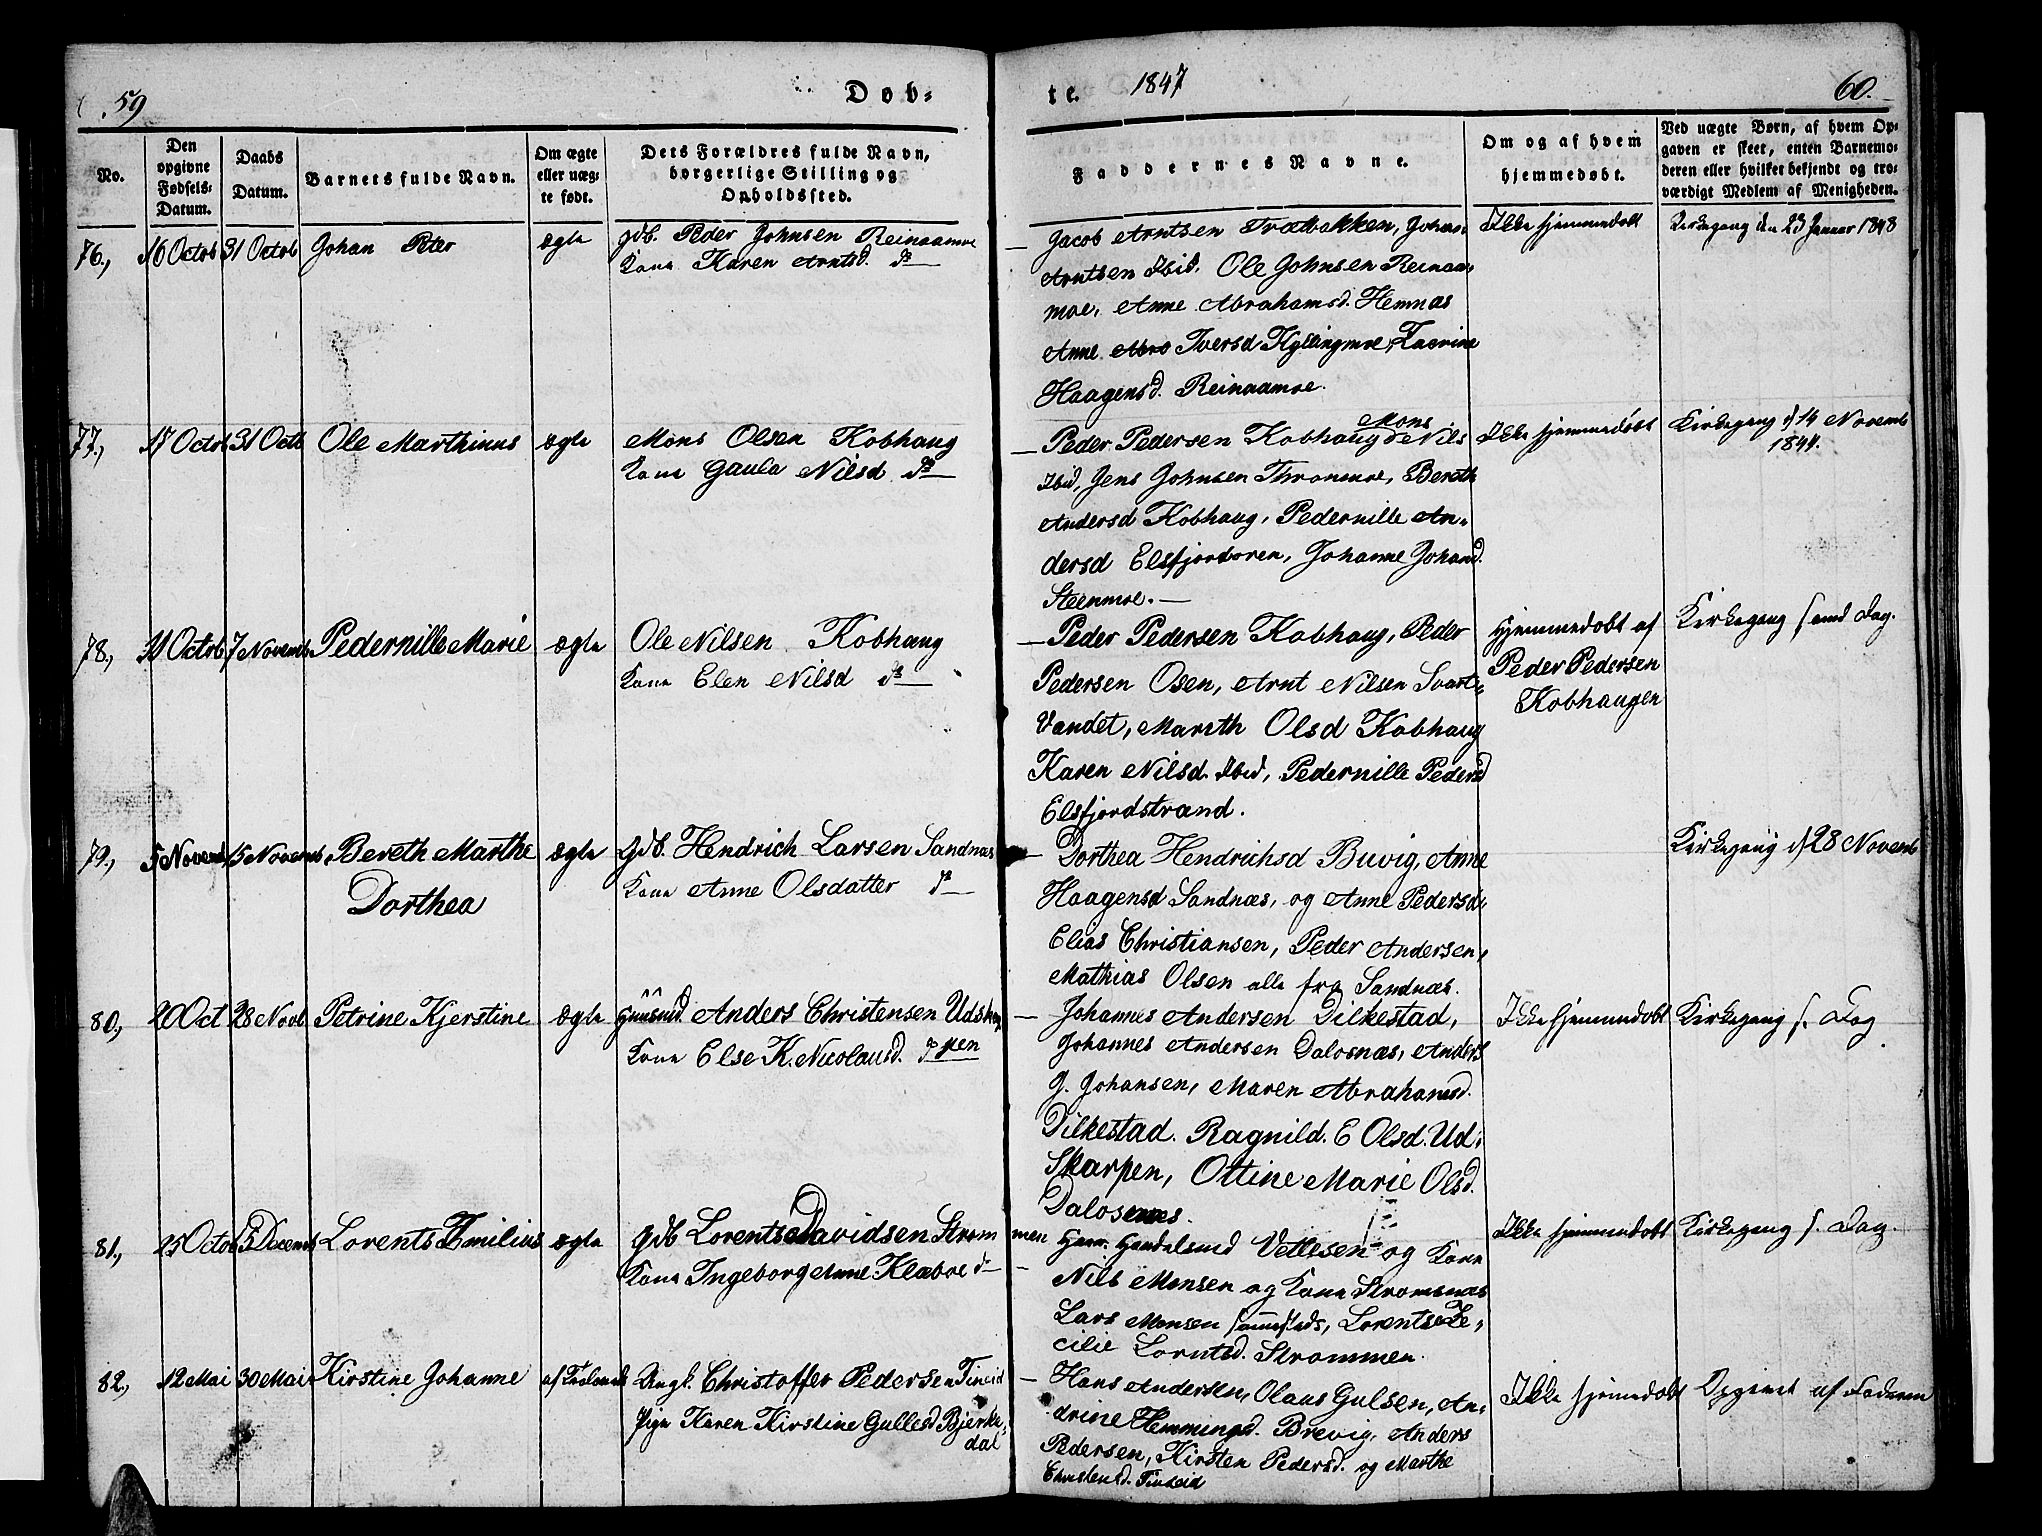 59
Døb-
te.
1847
60.
No.
Den opgivne Fødsels-Datum.
Daabs Datum.
Barnets fulde Navn.
Om ægte eller uæg-te født.
Dets Forældres fulde Navn, borgerlige Stilling og Opholdssted.
Faddernes Navne.
Om og af hvem hjemmedøbt.
Ved uægte Børn, af hvem Op-gaven er skeet, enten Barnemo-deren eller hvilket bekjendt og tro-værdigt Medlem af Menigheden.
76.,
16 Octob
31 Octob
Johan Peter
ægte
Gdb. Peder Johnsen Reinaamoe
Kone Karen Arntsd. ds
Jacob Arntsen Træbakken, Johan
Arntsen Ibid. Ole Johnsen Reinaa-
moe, Anne Abrahamsd. Hemnæs
Anne Abra Iversd Kyllingmoe,
Haagensd. Reinaamoe.
Ikke hjemmedøbt
Kirkegang den 23 Januar 1848
77.,
17 Octob
31 Octb
Ole Marthinus
ægte
Mons Olsen Kobhaug
Kone Gaula Nilsd ds
Mons
Peder Pedersen Kobhaug Nils
Ibid, Jens Johnsen Thronmoe, Bereth
Andersd Kobhaug, Pedernille An-
dersd Elsfjordoren, Johanne Johansd.
Steenmoe.
Ikke hjemmedøbt
Kirkegang d 14 Novemb
1847.
78.,
31 Octob
7 Novemb
Pedernille Marie
ægte
Ole Nilsen Kobhaug
Kone Elen Nilsd ds
Peder Pedersen Kobhaug, Peder
Pedersen Osen, Arnt Nilsen Svart-
Vandet, Marith Olsd Kobhaug
Karen Nilsd. Ibid, Pedernille Pedersd
Elsfjordstrand.
Hjemmedøbt af
Peder Pedersen
Kobhaugen
Kirkegang samd Dag.
79.,
5 Novemb
15 Novemb
Bereth Marthe
Dorthea
ægte
Gdb. Hendrich Larsen Sandnæs
Kone Anne Olsdatter ds
Dorthea Hendrichsd Buvig, Anne
Haagensd Sandnæs, og Anne Pedersd.
Elias Christiansen, Peder Andersen,
Mathias Olsen alle fra Sandnæs.
Kirkegang d 28 Novemb
80.,
20 Oct
28 Novb
Petrine Kjerstine
ægte
Huusmd. Anders Christensen Udskar
Kone Else K. Nicolausd. ds pen
Johannes Andersen Dilkestad,
Johannes Andersen Dalosnæs, Anders
G. Johansen, Maren Abrahamsd.
Dilkestad. Ragnild. E Olsd. Ud-
Skarpen, Ottine Marie Olsd.
Dalosnæs.
Ikke hjemmedøbt
Kirkegang s. Dag
81.,
25 Octob
5 Decemb
Lorents Emilius
ægte
Gdb Lorents Davidsen Strom
men
Kone Ingeborg Anne Klæboe ds
Handelsmd Vettesen og Kone
Nils Monsen og Kone Stromsnæs
Lars Monsen sammesteds, Lorentse Ce-
cilie Lorntsd. Strommen.
Ikke hjemmedøbt
Kirkegang s. Dag.
82.,
12 Mai
30 Mai
Kirstine Johanne
Ungk. Christoffer Pedersen Fineid
Pige Karen Kirstine Gullesd Bjerke-
dal
Hans Andersen, Olaus Gulsen, An-
drine Hemmingsd. Brevig, Anders
Pedersen, Kirsten Pedersd. og Marthe
Christensd. Fineid
Ikke hjemmedøbt
Opgivet af Faderen